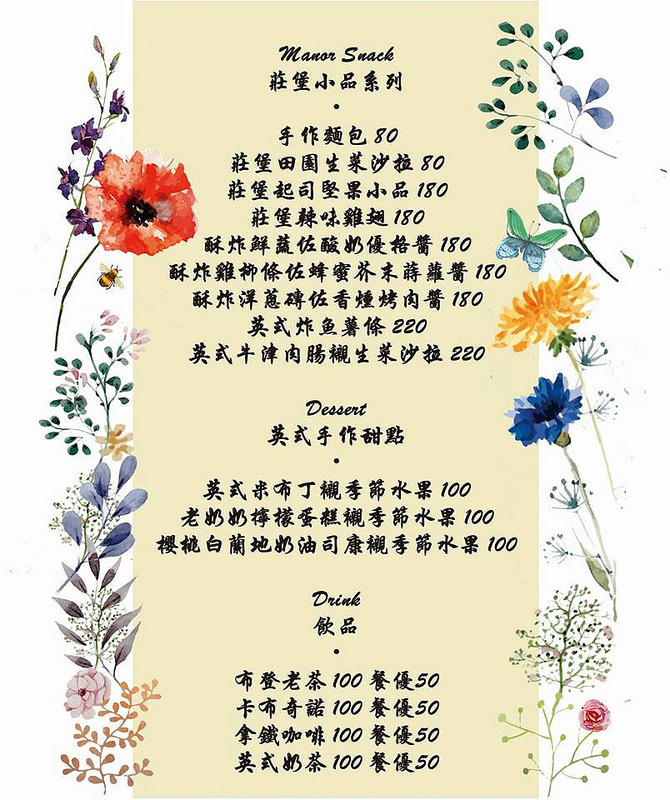 Manor Snack
莊堡小品系列
•
手作麵包 80
莊堡田園生菜沙拉 80
莊堡起司堅果小品 180
莊堡辣味雞翅 180
酥炸鮮蔬佐酸奶優格醬 180
酥炸雞柳條佐蜂蜜芥末蒔蘿醬 180
酥炸洋蔥磚佐香燻烤肉醬 180
英式炸魚薯條 220
英式牛津肉腸襯生菜沙拉 220
Dessert
英式手作甜點
•
英式米布丁襯季節水果 100
老奶奶檸檬蛋糕襯季節水果 100
櫻桃白蘭地奶油司康襯季節水果 100
Drink
飲品
•
布登老茶 100 餐優50
卡布奇諾 100 餐優50
拿鐵咖啡 100 餐優50
英式奶茶 100 餐優50